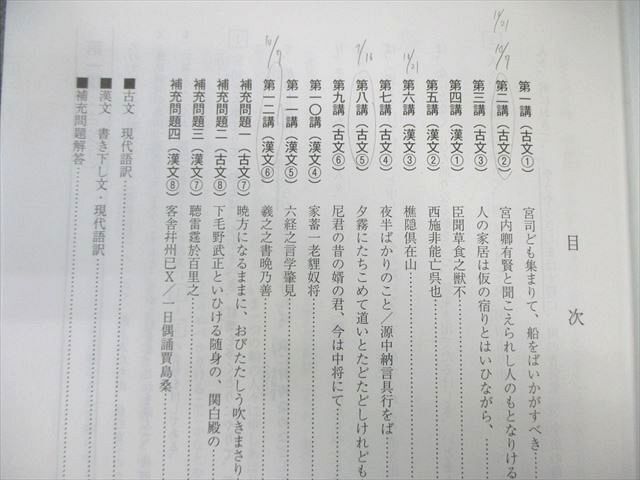 目次
第一講（古文①）　宮司ども集まりて、船をばいかがすべき
10/21
10/7
第二講（古文②）　宮内卿有賢と聞こえられし人のもとなりける
第三講（古文③）　人の家居は仮の宿りとはいひながら、
第四講（漢文①）　臣聞草食之獣不
第五講（漢文②）　西施非能亡呉也
第六講（漢文③）　樵隠倶在山
第七講（古文④）　夜半ばかりのこと／源中納言具行をば
9/16
第八講（古文⑤）　夕霧にたちこめて道いとたどたどしけれども
第九講（古文⑥）　尼君の昔の婿の君、今は中将にて
第一〇講（漢文④）　家蓄一老貍奴将
第一一講（漢文⑤）　六経之言学肇見
第一二講（漢文⑥）　羲之之書晩乃善
補充問題一（古文⑦）　暁方になるままに、おびたたしう吹きまさり
補充問題二（古文⑧）　下毛野武正といひける随身の、関白殿の
補充問題三（漢文⑦）　聴雷霆於百里之
補充問題四（漢文⑧）　客舎幷州已X／一日偶誦賈島桑
■古文　現代語訳
■漢文　書き下し文・現代語訳
■補充問題解答